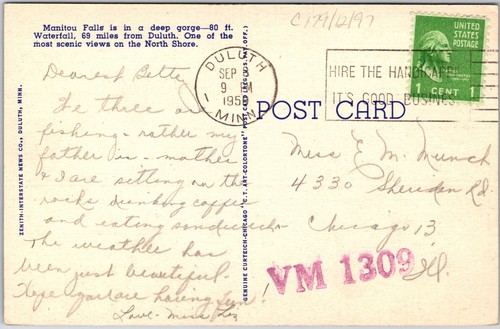 Manitou Falls is in a deep gorge—80 ft.
Waterfall, 69 miles from Duluth. One of the
most scenic views on the North Shore.
C179/12/97
UNITED STATES
POSTAGE
1 CENT 1
DULUTH
SEP
9 PM
195
MINN.
1
HIRE THE HANDICAPP
IT'S GOOD BUSINESS
POST CARD
Dearest Betty
We three are
fishing - rather my
father is - mother
& I are sitting on the
rocks drinking coffee
and eating sandwiches
The weather has
been just beautiful-
Hope you are having fun!
Love - Miss
Miss E. M. Munch
4330 Sheridan Rd
Chicago 13
Ill.
VM 1309
ZENITH-INTERSTATE NEWS CO., DULUTH, MINN.
GENUINE CURTEICH-CHICAGO "C. T. ART-COLORTONE" POST CARD (REG. U. S. PAT. OFF.)